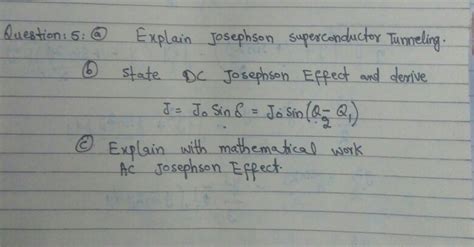 Question: 5: (a) Explain Josephson superconductor Tunneling.
(b) State DC Josephson Effect and derive
J = J₀ Sin δ = J₀ Sin (θ₂ - θ₁)
(c) Explain with mathematical work
AC Josephson Effect.